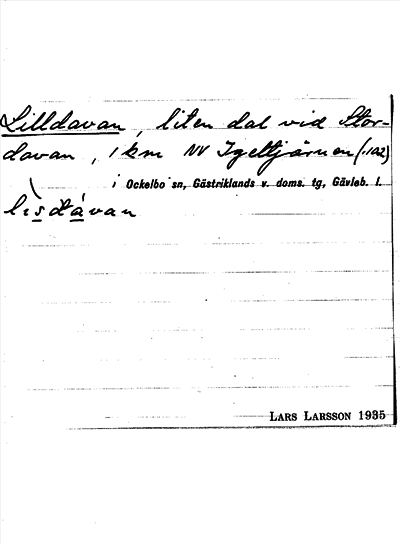 Lilldavan, liten dal vid Stor-
davan, 1 km NV Igeltjärnen (.102)
i Ockelbo sn, Gästriklands v. doms. tg, Gävleb. l.
LARS LARSSON 1935